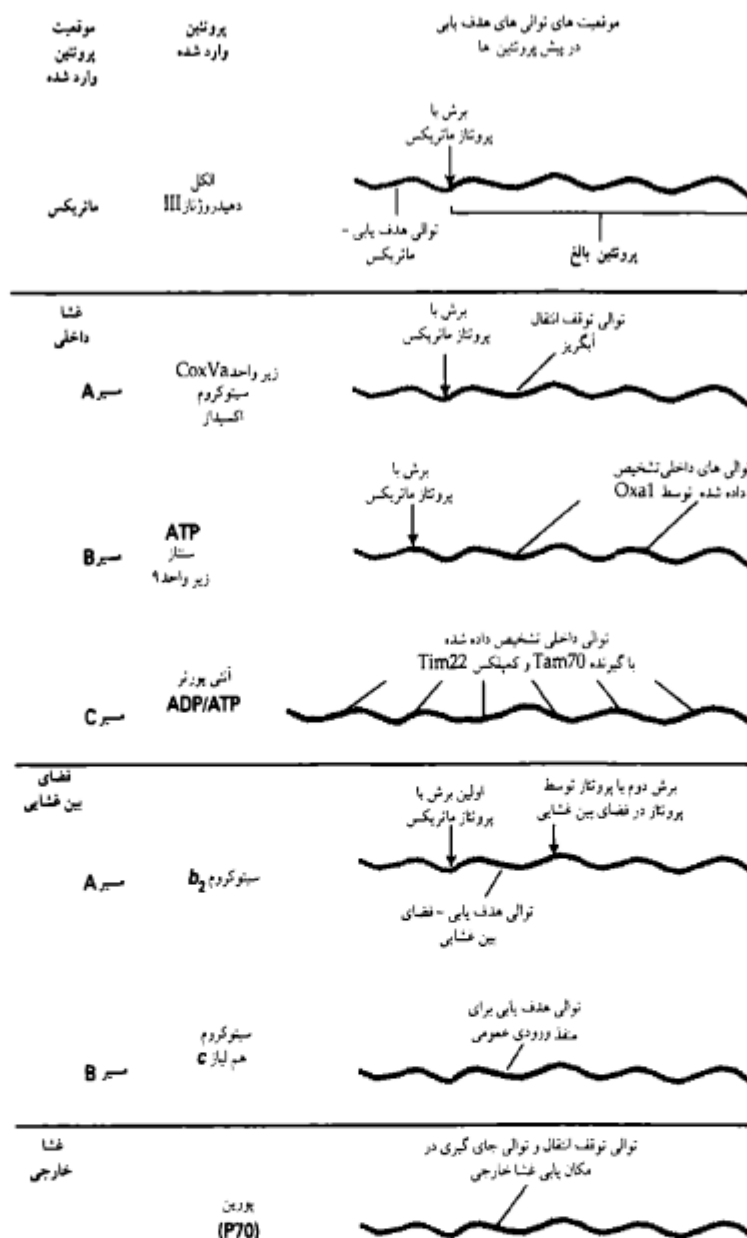 موقعیت
پروتئین
وارد شده
پروتئین
وارد شده
موقعیت های توالی های هدف یابی
در پیش پروتئین ها
ماتریکس
الکل
دهیدروژناز III
برش با
پروتئاز ماتریکس
توالی هدف یابی -
ماتریکس
پروتئین بالغ
غشا
داخلی
مسیر A
زیر واحد CoxVa
سیتوکروم
اکسیداز
برش با
پروتئاز ماتریکس
توالی توقف انتقال
آبگریز
مسیر B
ATP
سنتاز
زیر واحد ۹
برش با
پروتئاز ماتریکس
توالی های داخلی تشخیص
داده شده توسط Oxa1
مسیر C
آنتی پورتر
ADP/ATP
توالی داخلی تشخیص داده شده
با گیرنده Tam70 و کمپلکس Tim22
فضای
بین غشایی
مسیر A
سیتوکروم b₂
اولین برش با
پروتئاز ماتریکس
برش دوم با پروتئاز توسط
پروتئاز در فضای بین غشایی
توالی هدف یابی - فضای
بین غشایی
مسیر B
سیتوکروم
هم لیاز c
توالی هدف یابی برای
منفذ ورودی عمومی
غشا
خارجی
پورین
(P70)
توالی توقف انتقال و توالی جای گیری در
مکان یابی غشا خارجی